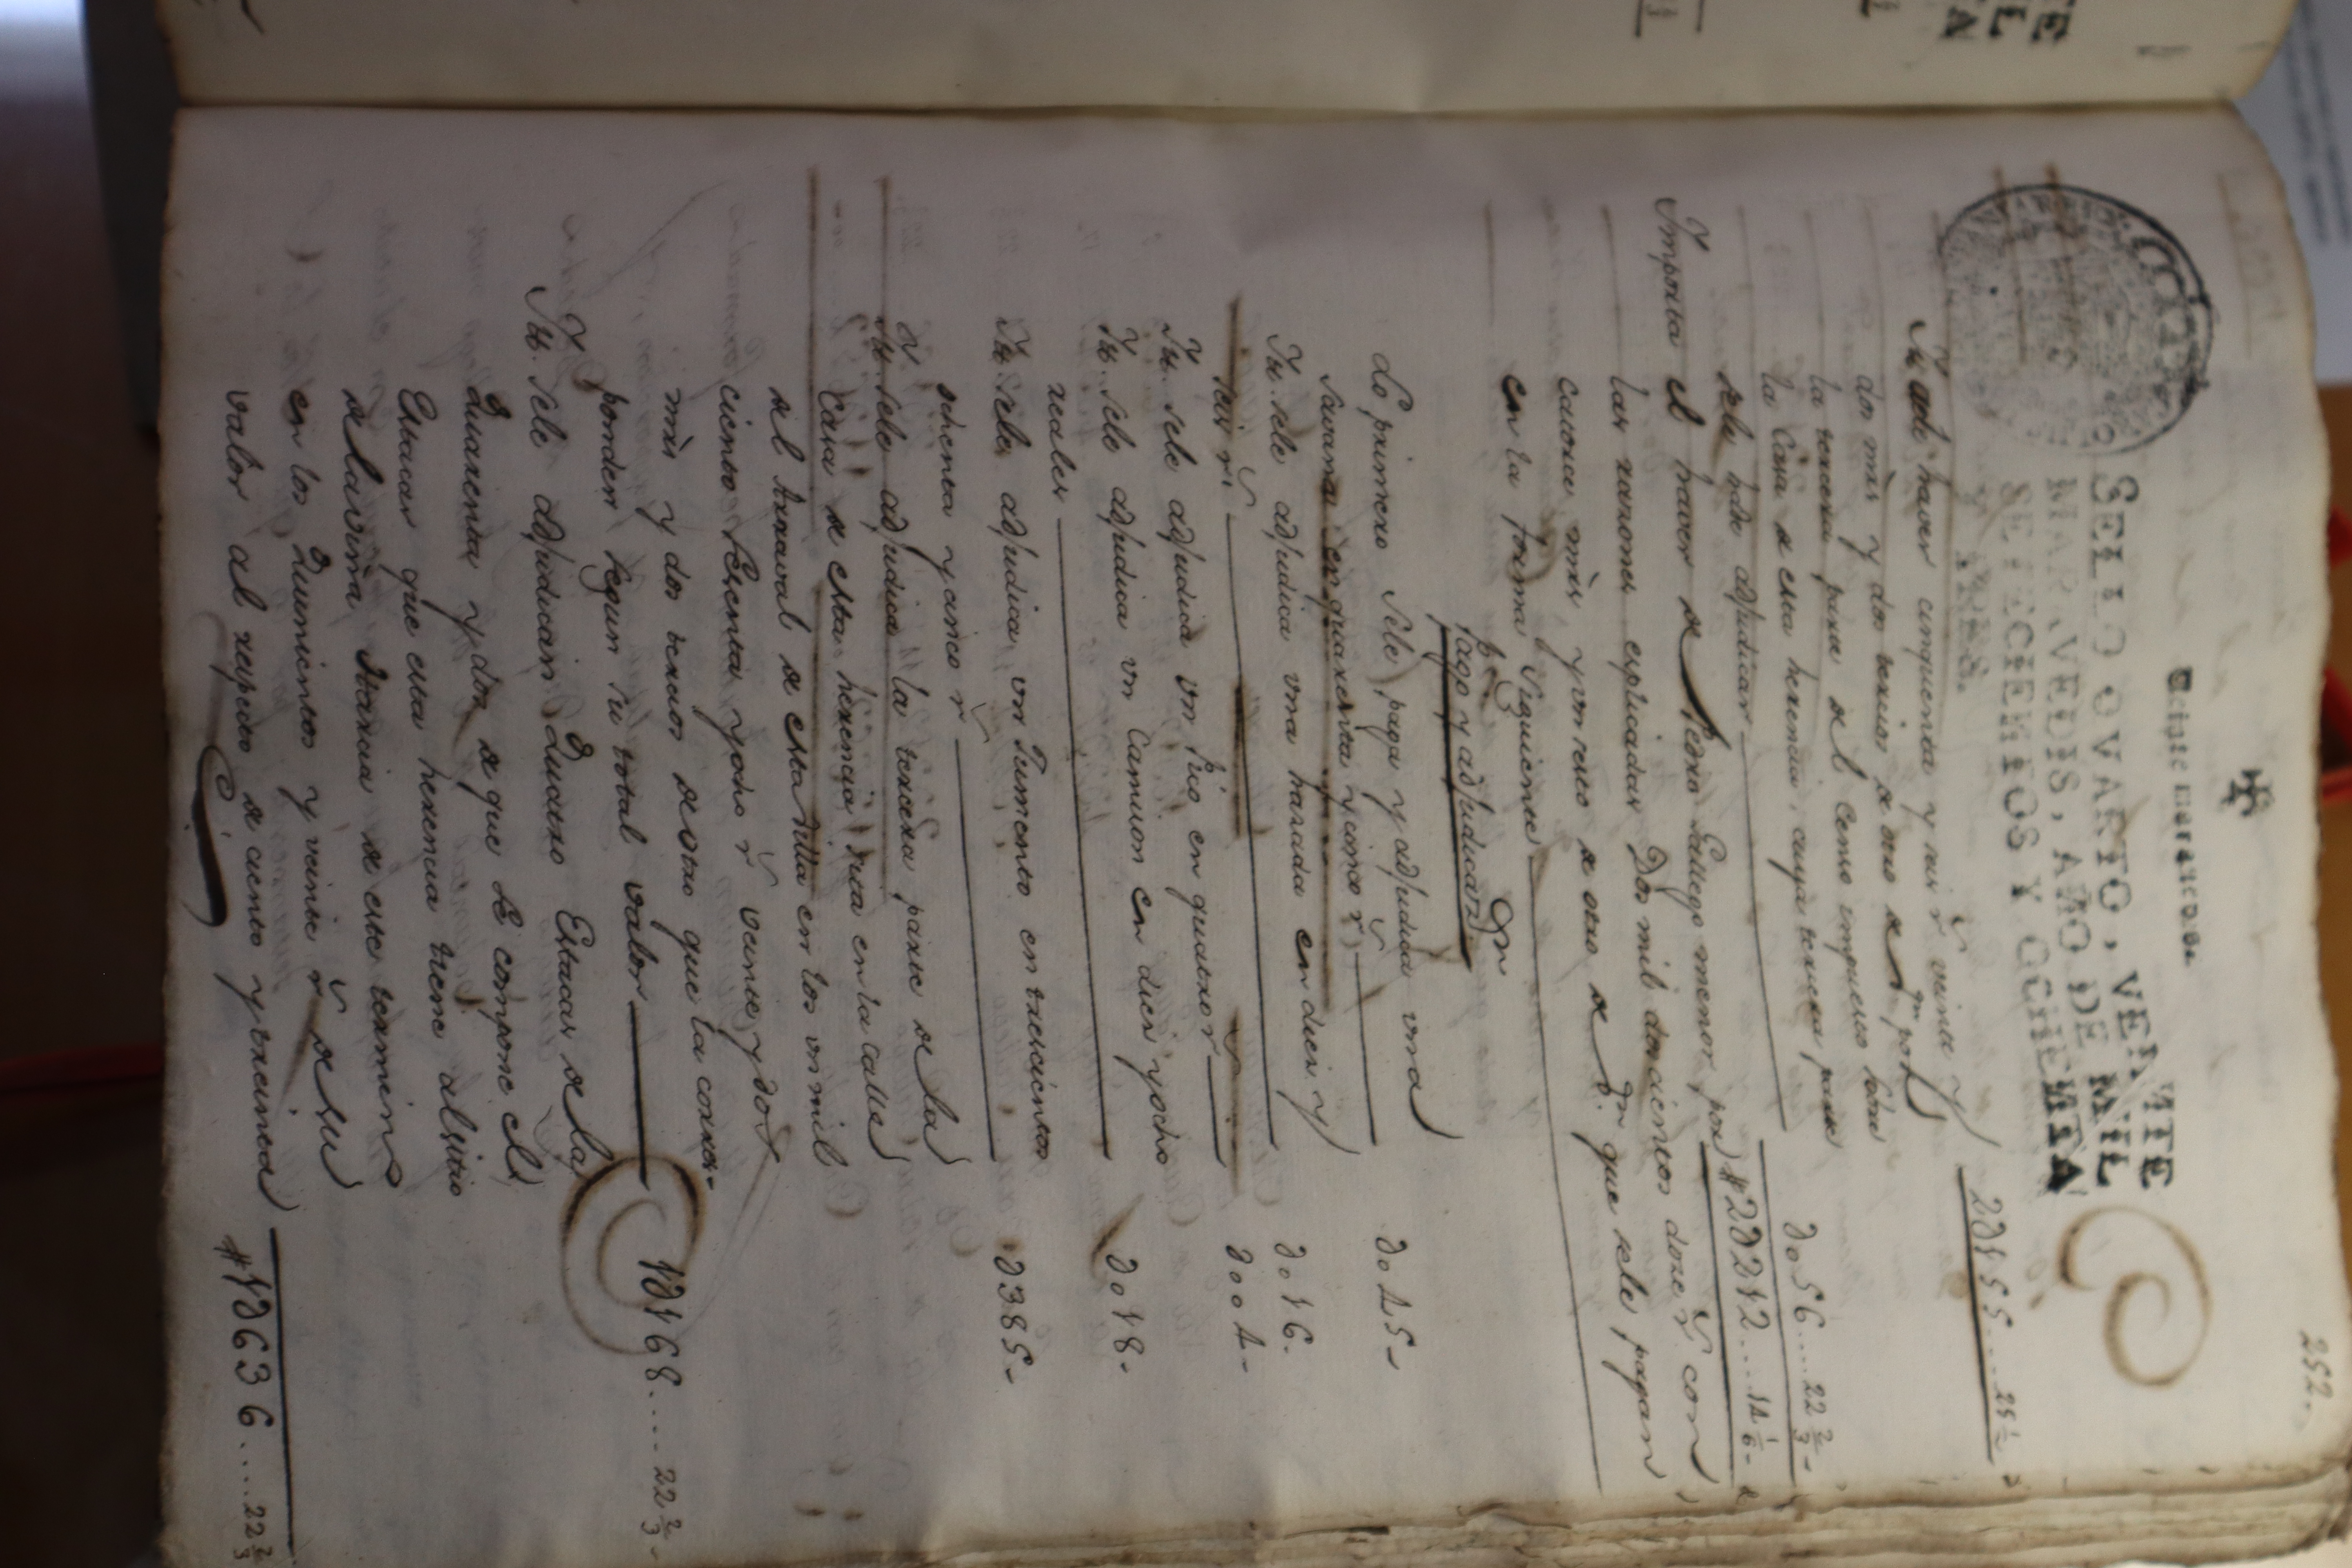 252.
Veinte maravedis.
SELLO QVARTO, VEINTE
MARAVEDIS, AÑO DE MIL
SETECIENTOS Y OCHENTA
Y TRES.
2∂155....25 ½
It. ade haver cinquenta y seis rr.s veinte y
dos mrs y dos tercios de otro de dr.n por
la tercera parte del Censo impuesto sobre
la Casa de esta herencia, cuya tercera parte
sele hade adjudicar ∂056....22 2/3
Importa el haver de Pedro Gallego menor, por #2∂212....14 1/6
las razones explicadas Dos mil doscientos doze rr.s con
catorce mrs y un sesto de otro de dr.n que sele pagan
en la forma siguiente
Pago y adjudicaz.on
Lo primero sele paga y adjudica una
Savana en quarenta y cinco rr.s ∂045
It. sele adjudica una harada en diez y
seis rr.s ∂016
It. sele adjudica un Pio en quatro rr.s ∂004
It. sele adjudica un Camion en diez y ocho
reales ∂018
It. sele adjudica un Jumento en trescientos
ochenta y cinco rr.s ∂385
It. sele adjudica la tercera parte de la
Casa de esta herencia sita en la calle
del Arraval de esta Villa en los un mil
ciento sesenta y ocho rr.s veinte y dos
mrs y dos tercios de otro que la corres-
ponden segun su total valor 1∂168....22 2/3
It. sele adjudican Quatro Estacas de las
Quarenta y dos de que se compone el
Estacar que esta herencia tiene al sitio
de la viña termino de este
en los Quinientos y veinte rr.s de su
valor al respecto de ciento y treinta
#1∂636....22 2/3